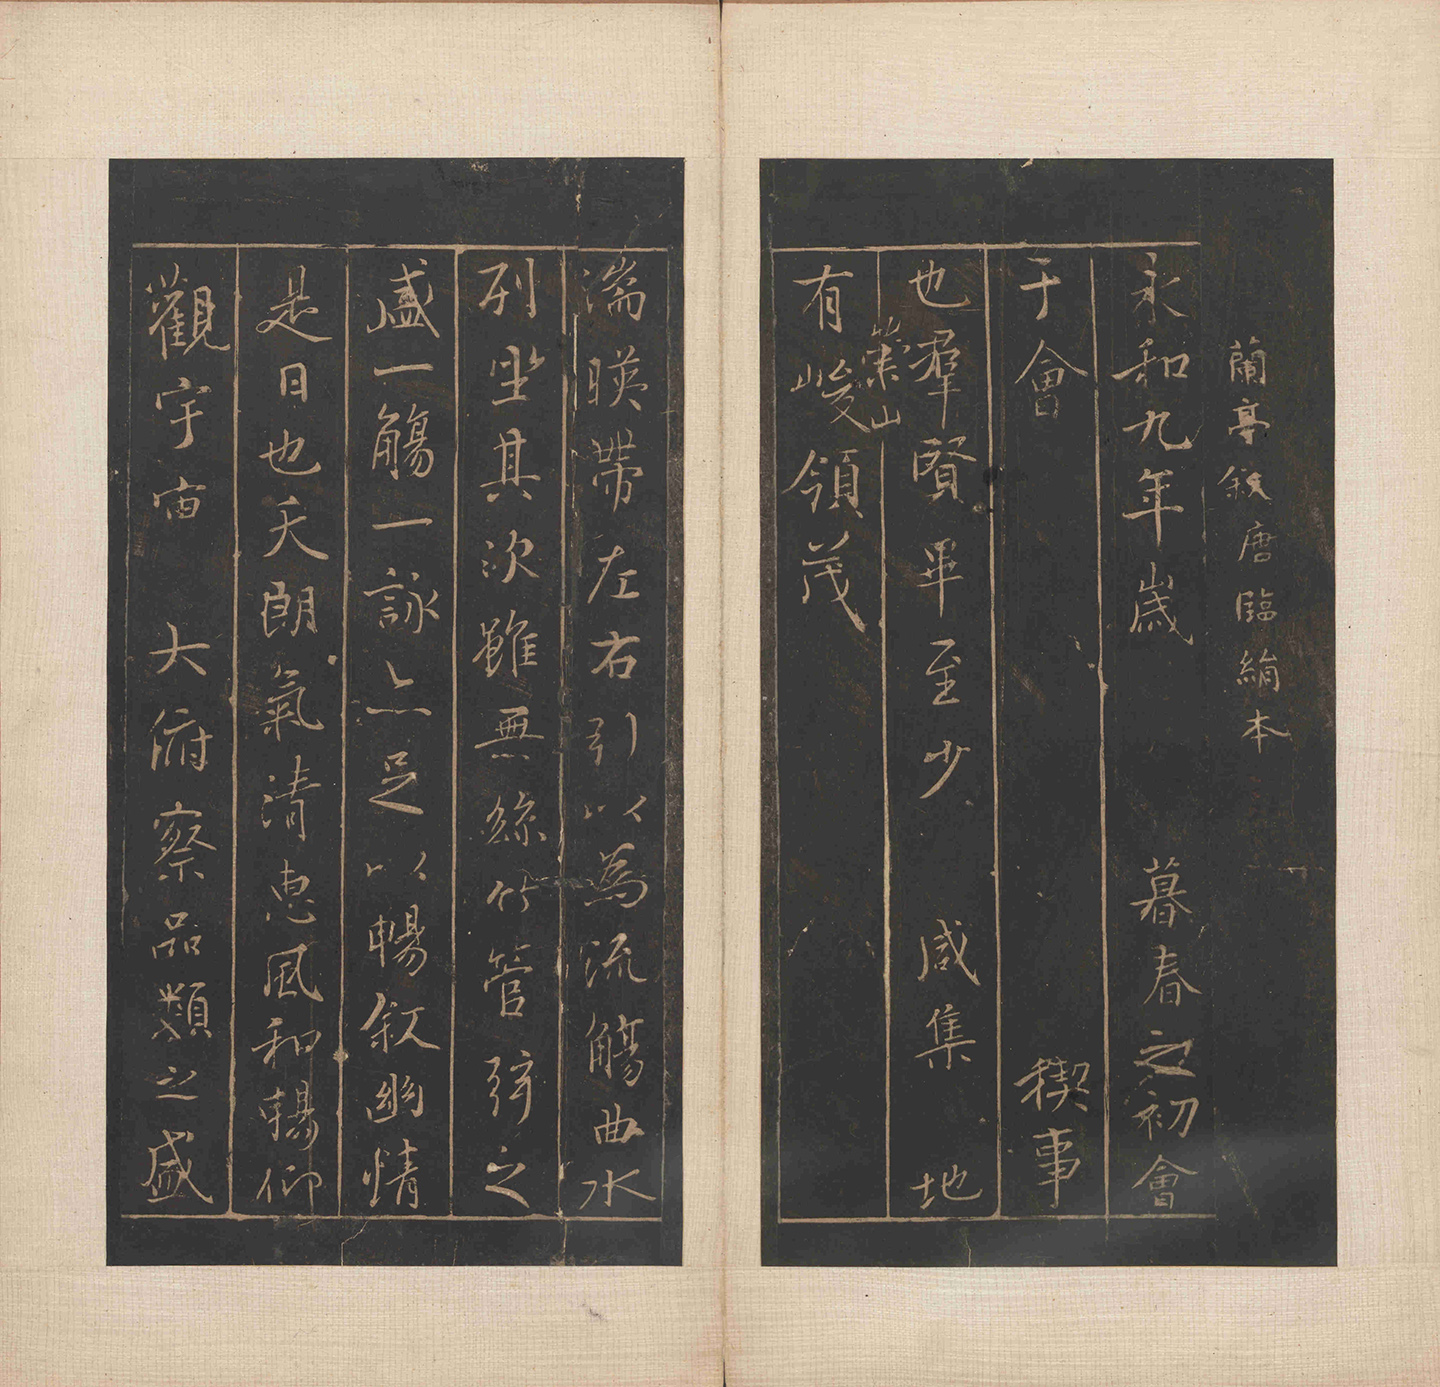 蘭亭敘唐臨絹本
永和九年歲暮春之初會
于會稧事
也羣賢畢至少咸集地
崇山
有峻領茂
湍暎帶左右引以為流觴曲水
列坐其次雖無絲竹管弦之
盛一觴一詠亦足以暢敘幽情
是日也天朗氣清惠風和暢仰
觀宇宙大俯察品類之盛